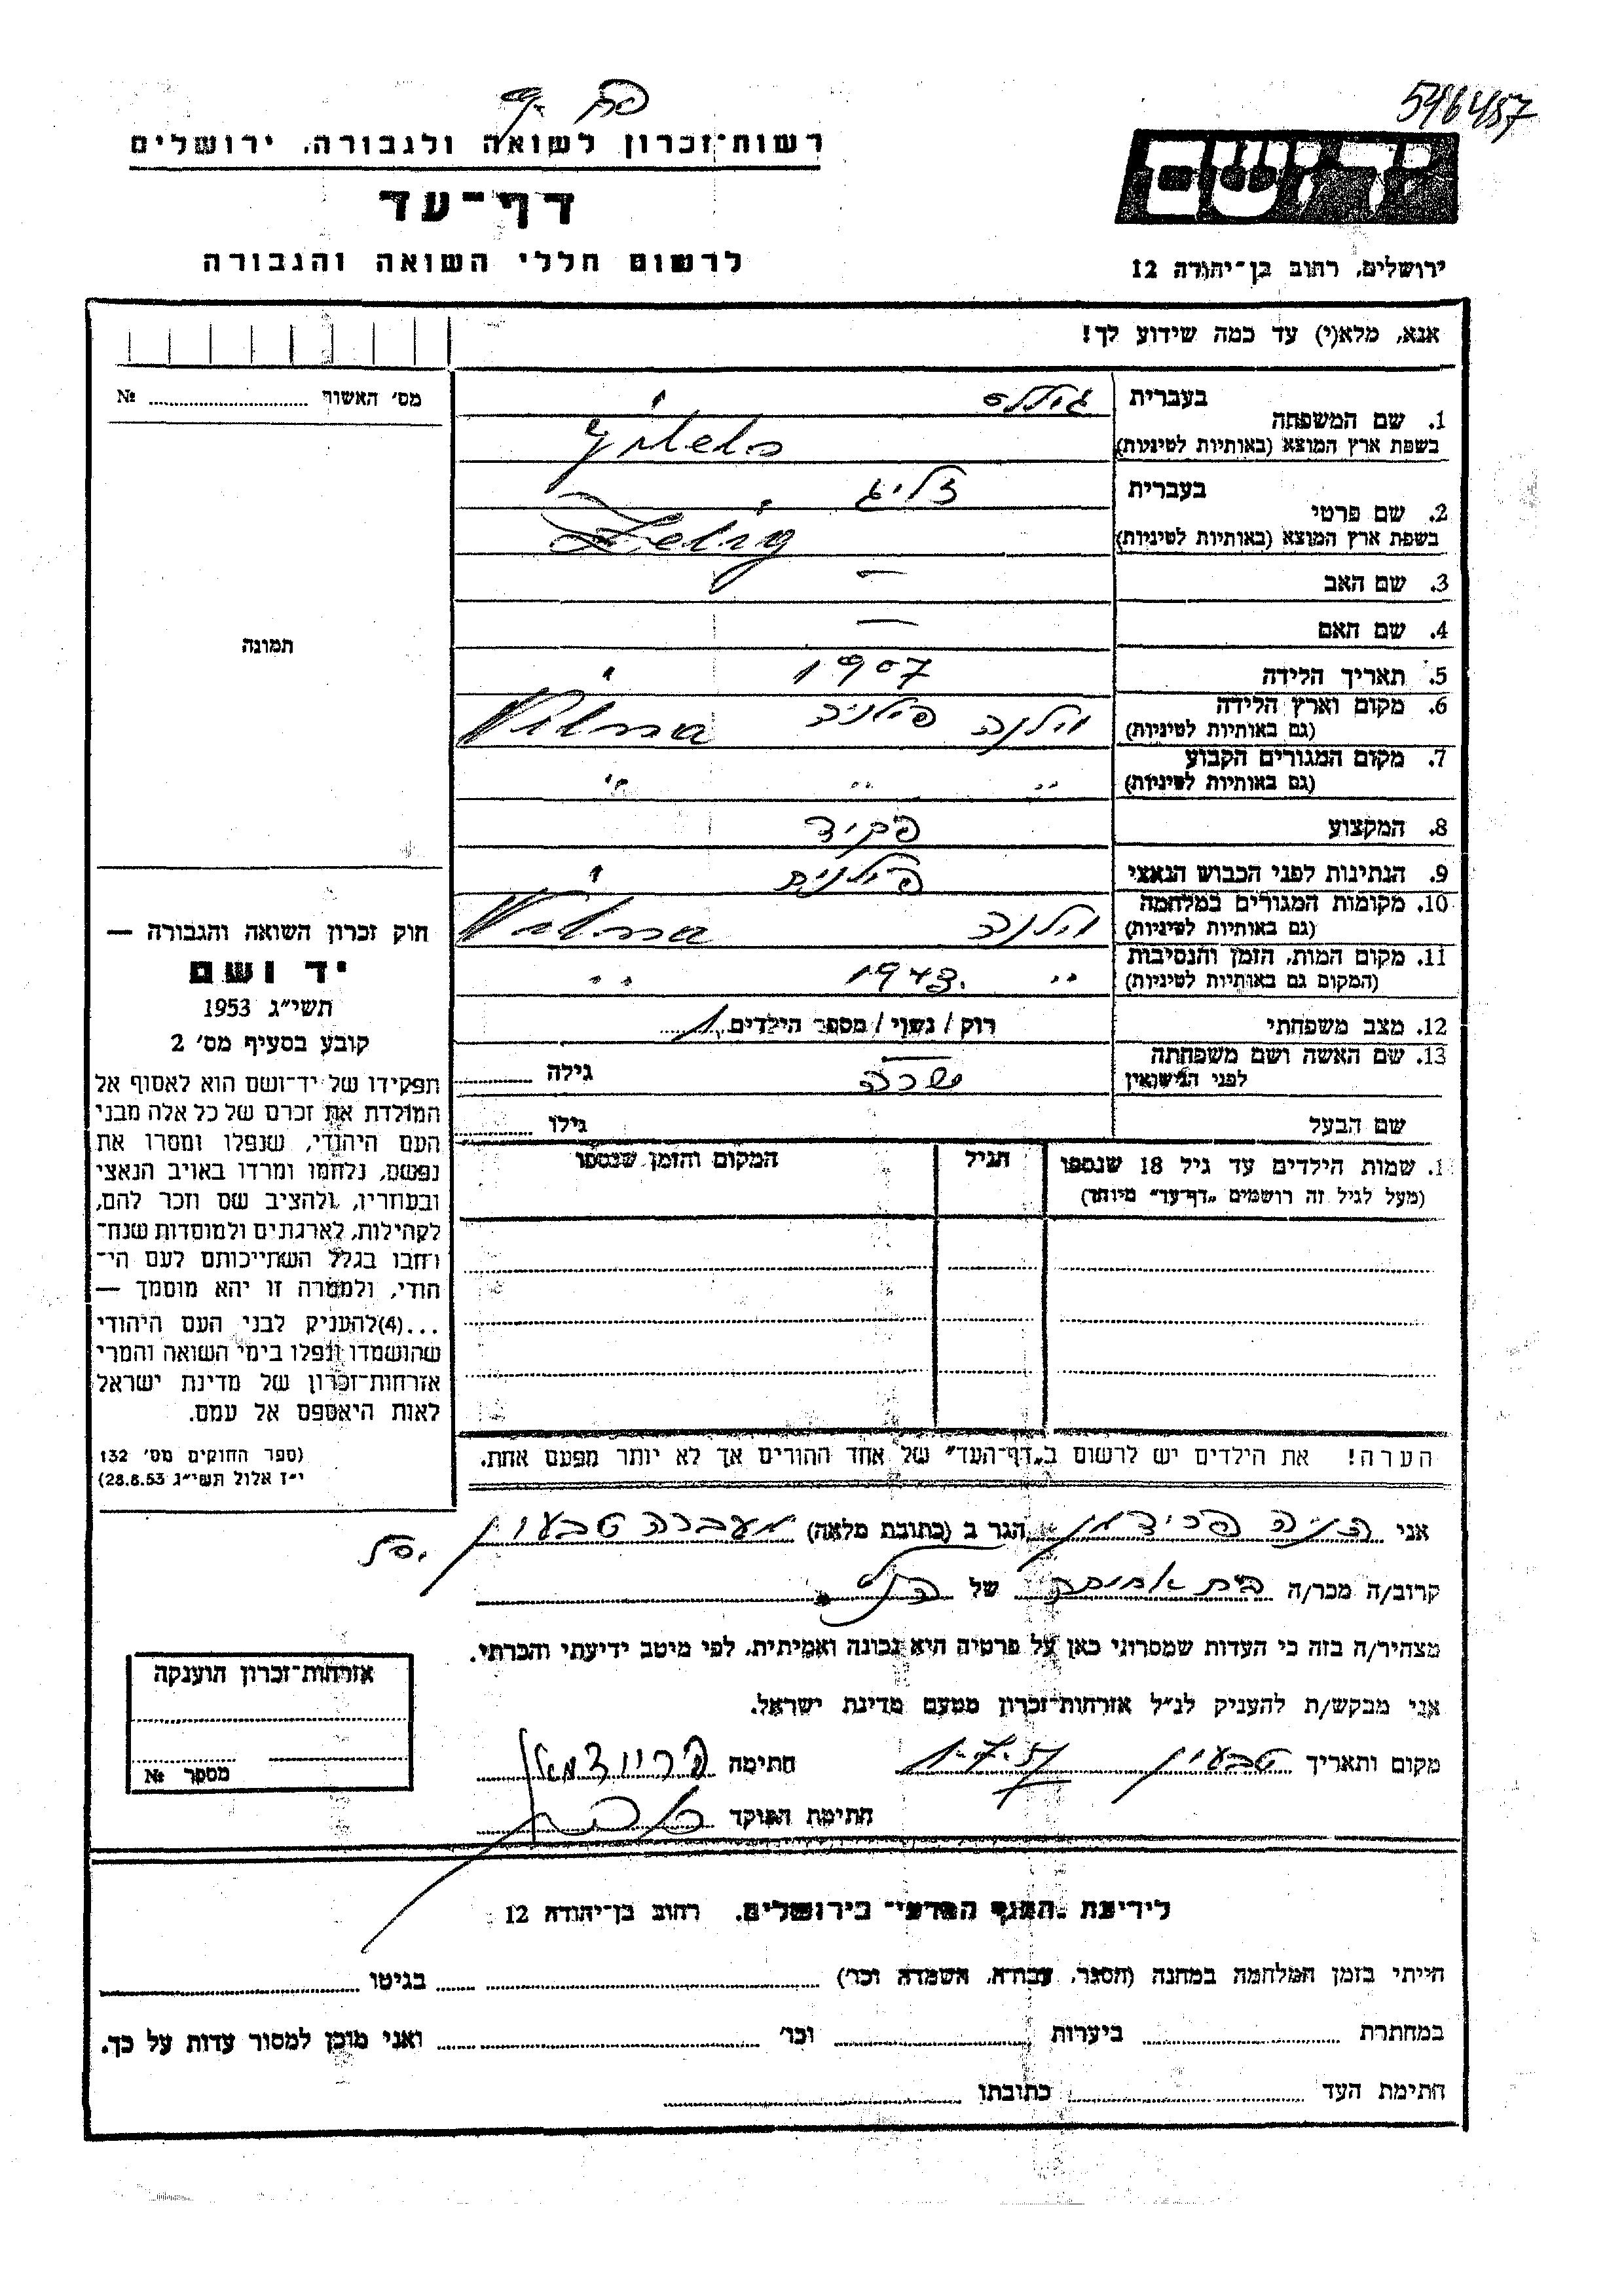 546457
רשות־זכרון לשואה ולגבורה, ירושלים
דף־עד
לרשום חללי השואה והגבורה
יד ושם
ירושלים, רחוב בן־יהודה 12
אנא, מלא(י) עד כמה שידוע לך!
מס׳ האשור №
תמונה
1. שם המשפחה בעברית
בשפת ארץ המוצא (באותיות לטיניות)
Gitels
2. שם פרטי בעברית זליג
בשפת ארץ המוצא (באותיות לטיניות) Zelig
3. שם האב —
4. שם האם —
5. תאריך הלידה 1907
6. מקום וארץ הלידה (גם באותיות לטיניות) וילנה פולניה Vilna
7. מקום המגורים הקבוע (גם באותיות לטיניות) " " "
8. המקצוע פקיד
9. הנתינות לפני הכבוש הנאצי פולנית
10. מקומות המגורים במלחמה (גם באותיות לטיניות) וילנה Vilna
11. מקום המות, הזמן והנסיבות (המקום גם באותיות לטיניות) " 1943. "
12. מצב משפחתי רוק / נשוי / מספר הילדים 1
13. שם האשה ושם משפחתה לפני הנישואין שרה גילה
שם הבעל גילו
1. שמות הילדים עד גיל 18 שנספו
(מעל לגיל זה רושמים „דף־עד" מיוחד)
הגיל
המקום והזמן שנספו
הערה! את הילדים יש לרשום ב„דף־העד" של אחד ההורים אך לא יותר מפעם אחת.
חוק זכרון השואה והגבורה —
יד ושם
תשי״ג 1953
קובע בסעיף מס׳ 2
תפקידו של יד־ושם הוא לאסוף אל
המולדת את זכרם של כל אלה מבני
העם היהודי, שנפלו ומסרו את
נפשם, נלחמו ומרדו באויב הנאצי
ובעוזריו, ולהציב שם וזכר להם,
לקהילות, לארגונים ולמוסדות שנח־
רחבו בגלל השתייכותם לעם הי־
הודי, ולמטרה זו יהא מוסמך —
...(4)להעניק לבני העם היהודי
שהושמדו ונפלו בימי השואה והמרי
אזרחות־זכרון של מדינת ישראל
לאות היאספם אל עמם.
(ספר החוקים מס׳ 132
י״ז אלול תשי״ג 28.8.53)
אני פרידמן הגר ב (כתובת מלאה) מעברה טבעון
קרוב/ה מכר/ה בת אחותה של הנ״ל
מצהיר/ה בזה כי העדות שמסרתי כאן על פרטיה היא נכונה ואמיתית, לפי מיטב ידיעתי והכרתי.
אני מבקש/ת להעניק לנ״ל אזרחות־זכרון מטעם מדינת ישראל.
מקום ותאריך טבעון 1.7.57 חתימה פריידמאן
חתימת הפוקד
אזרחות־זכרון הוענקה
מספר №
לידיעת הגנזך המדעי בירושלים, רחוב בן־יהודה 12
הייתי בזמן המלחמה במחנה (הסגר, עבודה, השמדה וכו׳) בגיטו
במחתרת ביערות וכו׳ ואני מוכן למסור עדות על כך.
חתימת העד כתובתו